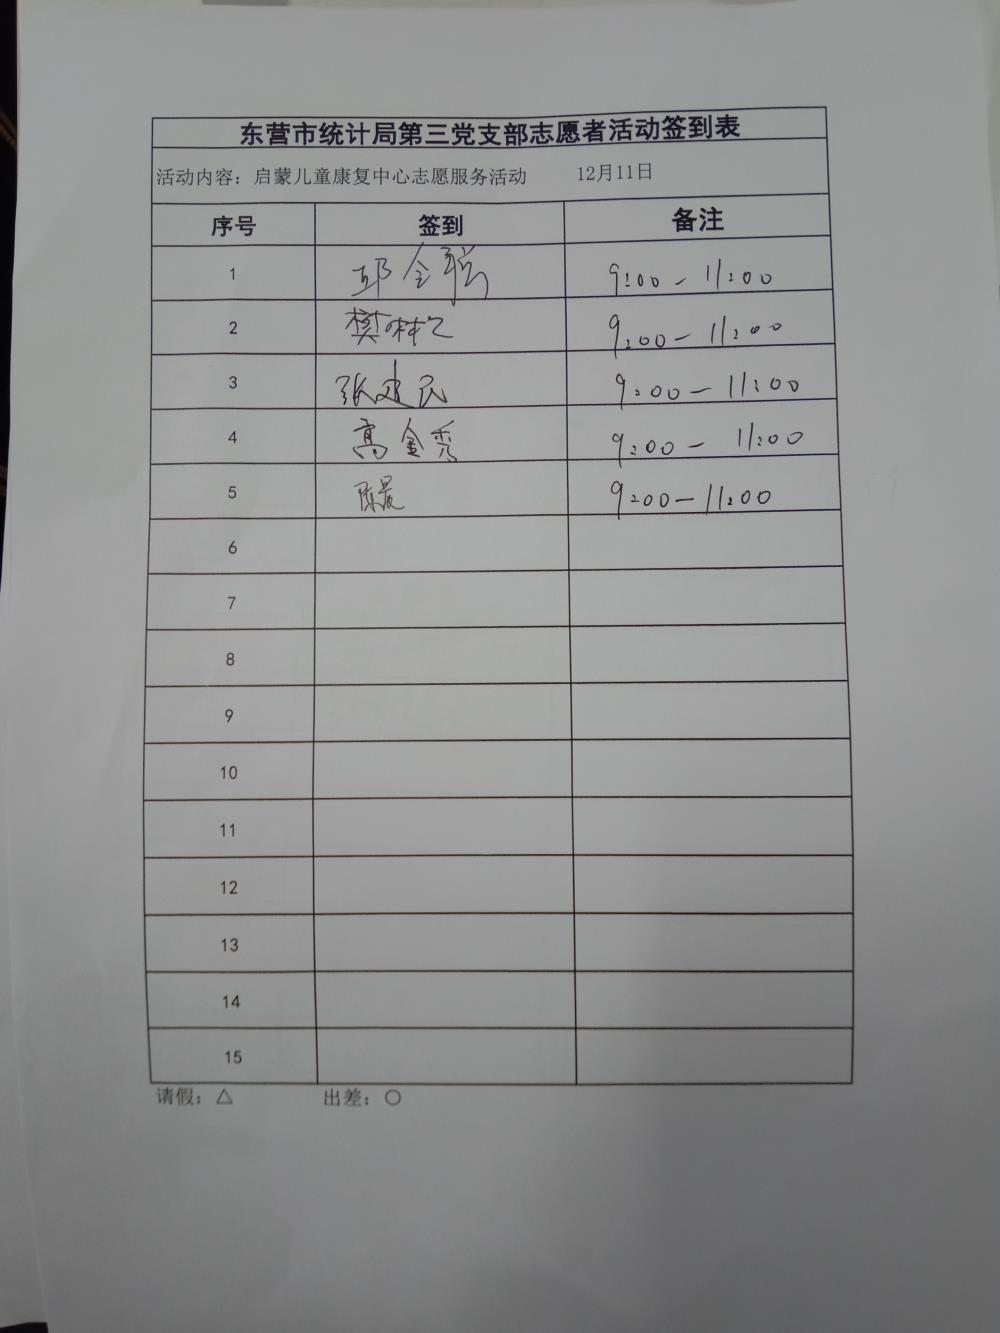 东营市统计局第三党支部志愿者活动签到表
活动内容：启蒙儿童康复中心志愿服务活动 12月11日
序号 签到 备注
1 邱 9:00－11:00
2 樊 9:00－11:00
3 张建民 9:00－11:00
4 高金秀 9:00－11:00
5 陈晨 9:00－11:00
6
7
8
9
10
11
12
13
14
15
请假：△ 出差：○